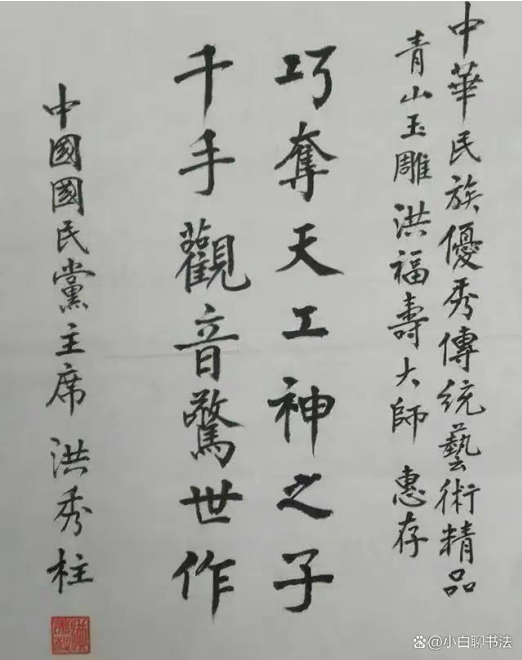 中華民族優秀傳統藝術精品
青山玉雕洪福壽大師 惠存
巧奪天工神之子
千手觀音驚世作
中國國民黨主席 洪秀柱
@小白聊书法